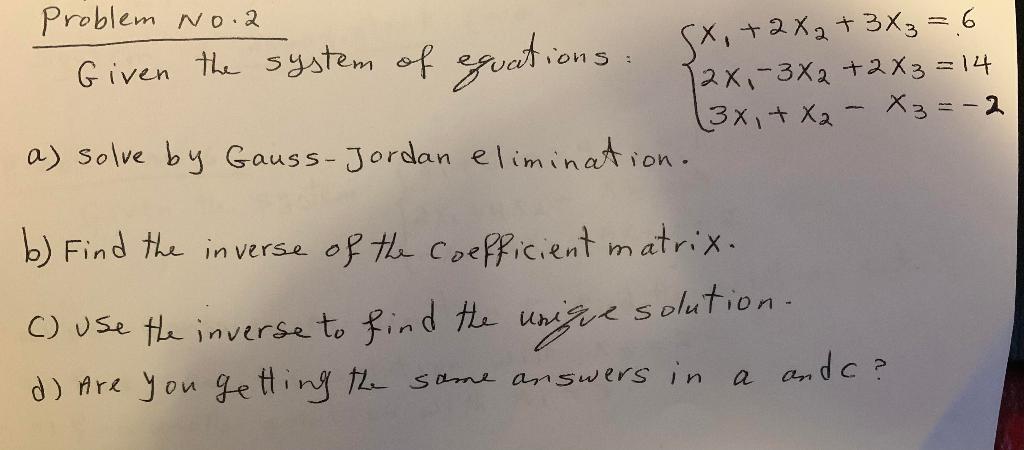 Problem No. 2
Given the system of equations : { x₁ + 2x₂ + 3x₃ = 6
2x₁ - 3x₂ + 2x₃ = 14
3x₁ + x₂ - x₃ = -2
a) solve by Gauss-Jordan elimination.
b) Find the inverse of the coefficient matrix.
c) use the inverse to find the unique solution.
d) Are you getting the same answers in a and c ?